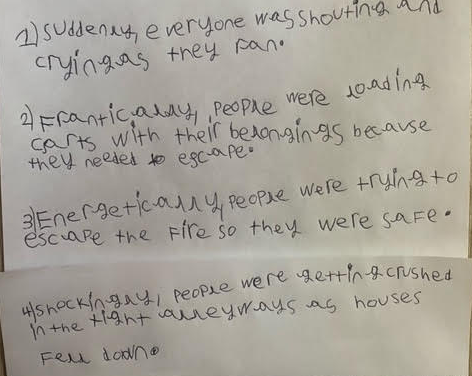 1) Suddenly, everyone was shouting and
crying as they ran.
2) Frantically, people were loading
carts with their belongings because
they needed to escape.
3) Energetically, people were trying to
escape the fire so they were safe.
4) Shockingly, people were getting crushed
in the tight alleyways as houses
fell down.